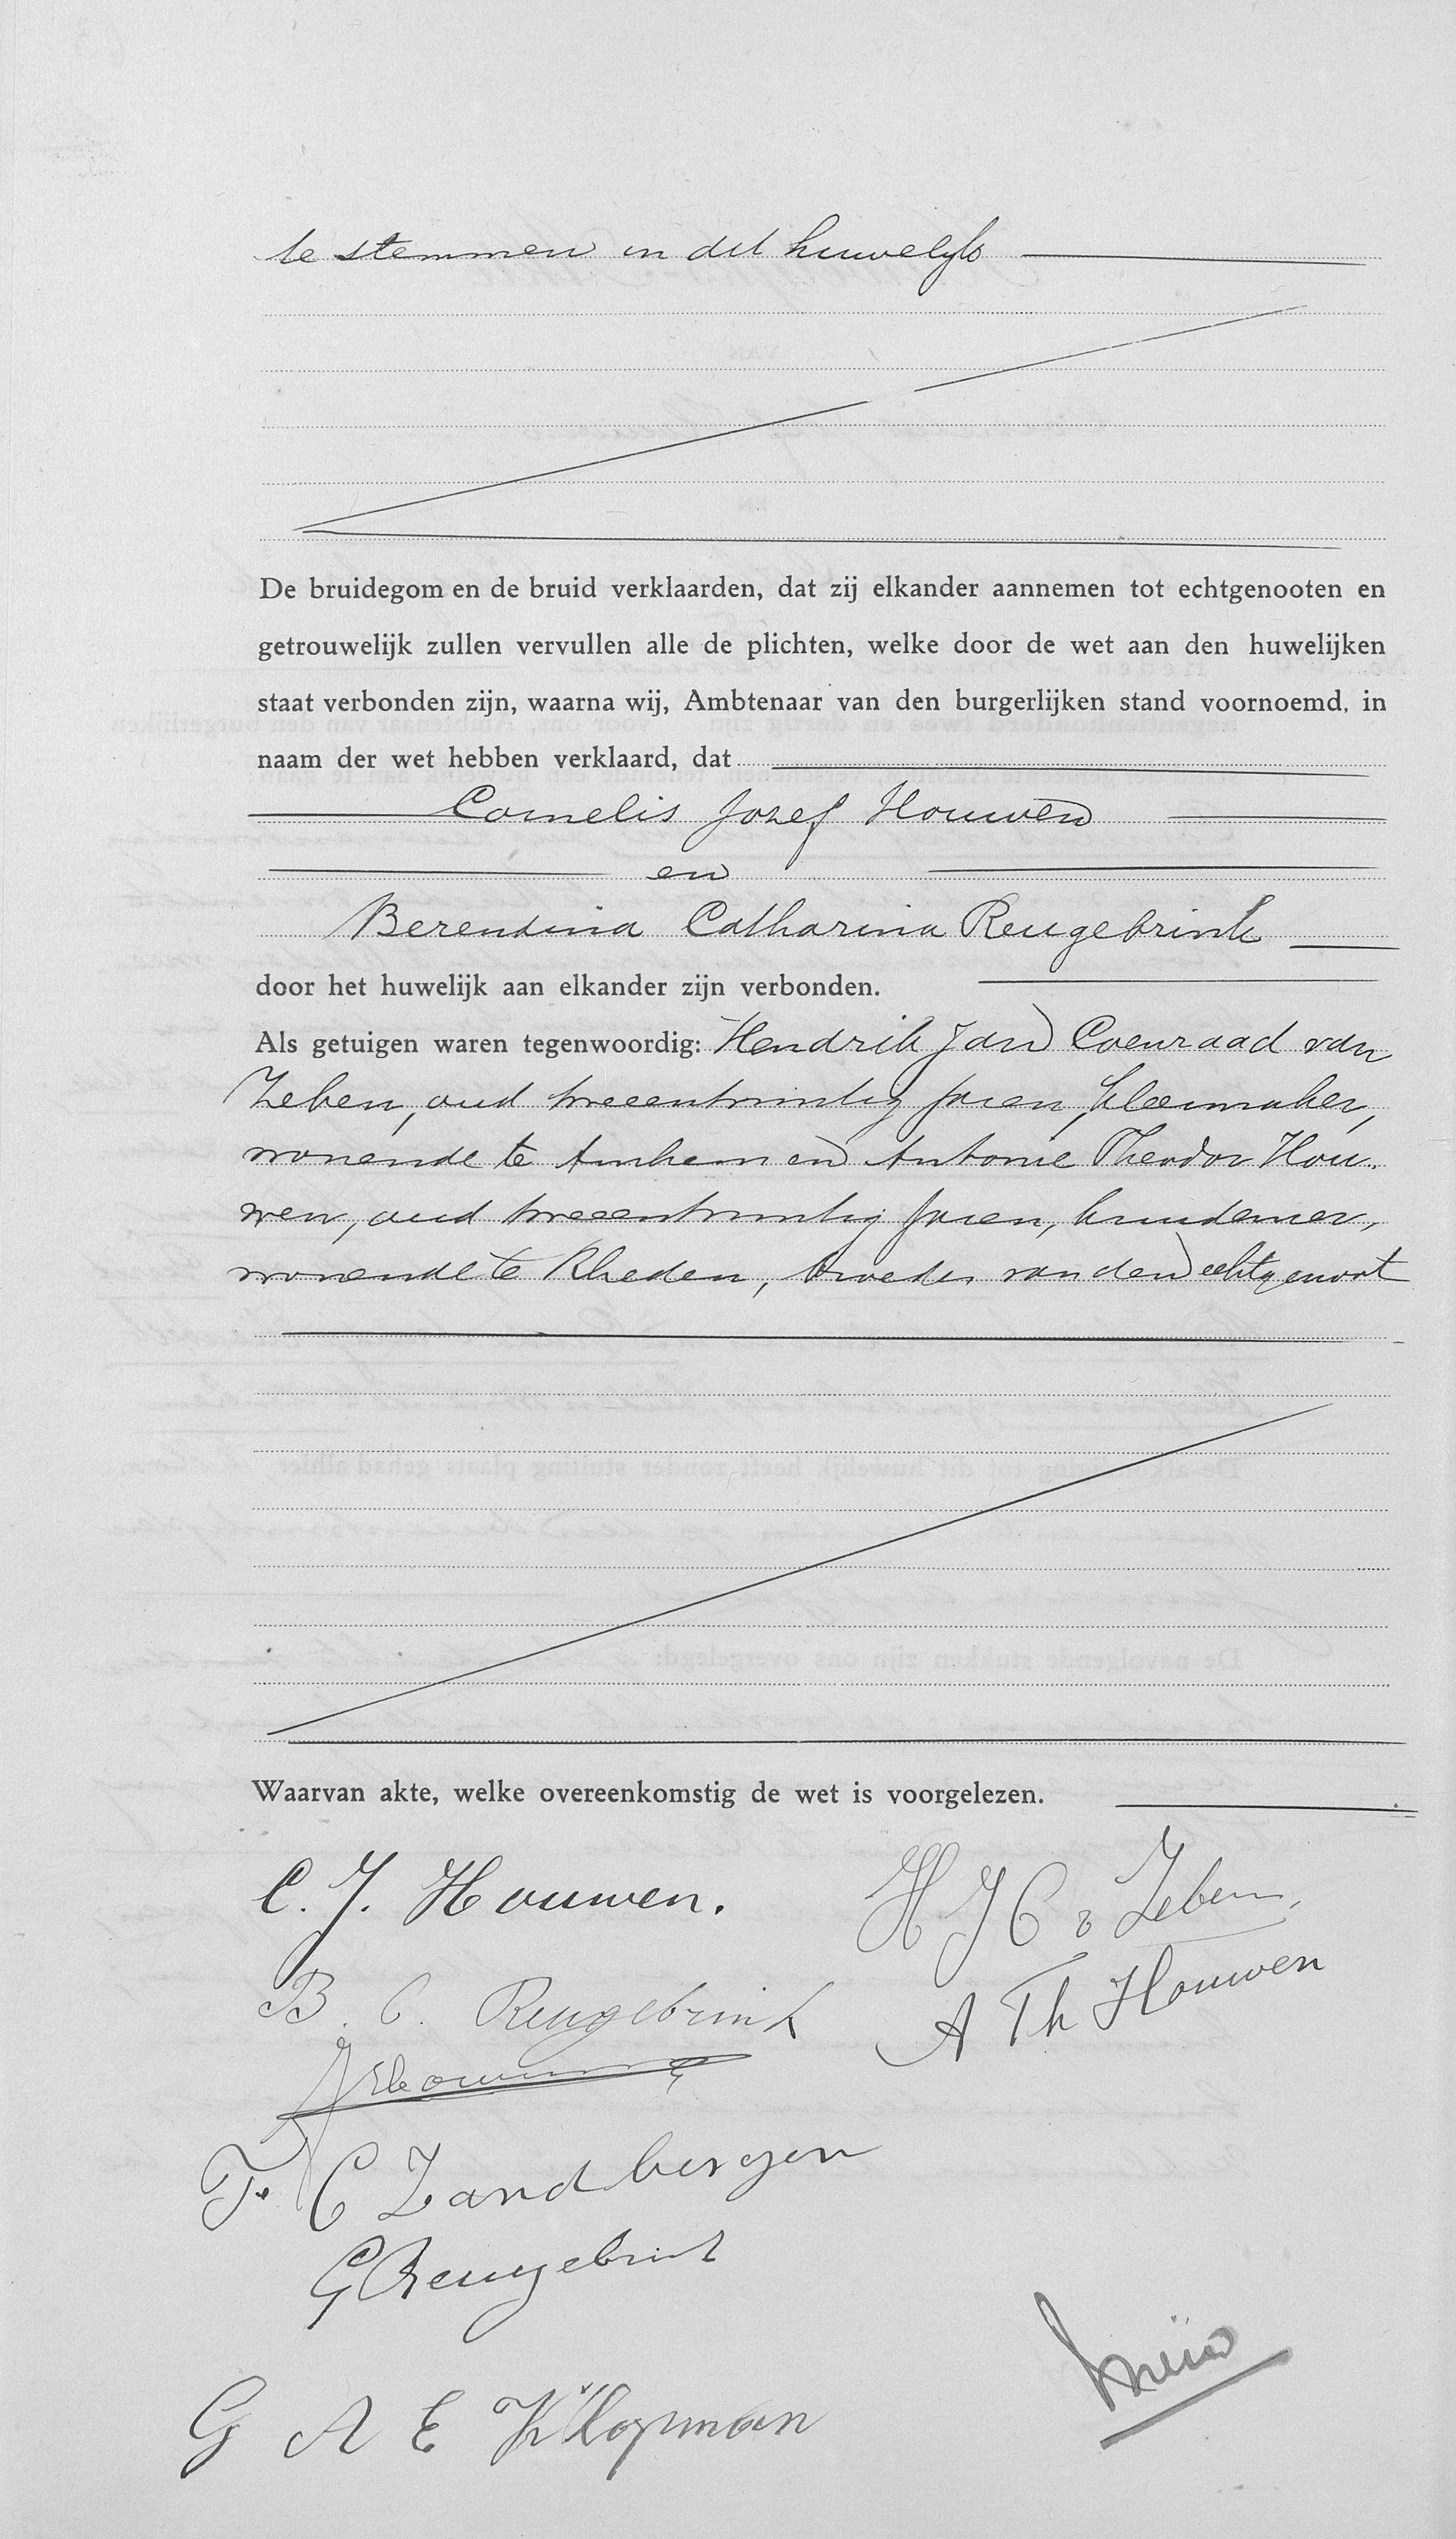 te stemmen in dit huwelijk
De bruidegom en de bruid verklaarden, dat zij elkander aannemen tot echtgenooten en
getrouwelijk zullen vervullen alle de plichten, welke door de wet aan den huwelijken
staat verbonden zijn, waarna wij, Ambtenaar van den burgerlijken stand voornoemd, in
naam der wet hebben verklaard, dat
Cornelis Jozef Houwen
en
Berendina Catharina Reugebrink
door het huwelijk aan elkander zijn verbonden.
Als getuigen waren tegenwoordig: Hendrik Jan Coenraad van
Zeben, oud tweeentwintig jaren, kleermaker,
wonende te Arnhem en Antonie Theodor Hou-
wen, oud tweeentwintig jaren, kruidenier,
wonende te Rheden, broeder van den echtgenoot
Waarvan akte, welke overeenkomstig de wet is voorgelezen.
C. J. Houwen.
H J C v Zeben
B. C. Reugebrink
A Th Houwen
F. C Zandbergen
G Reugebrink
G A E Klopman